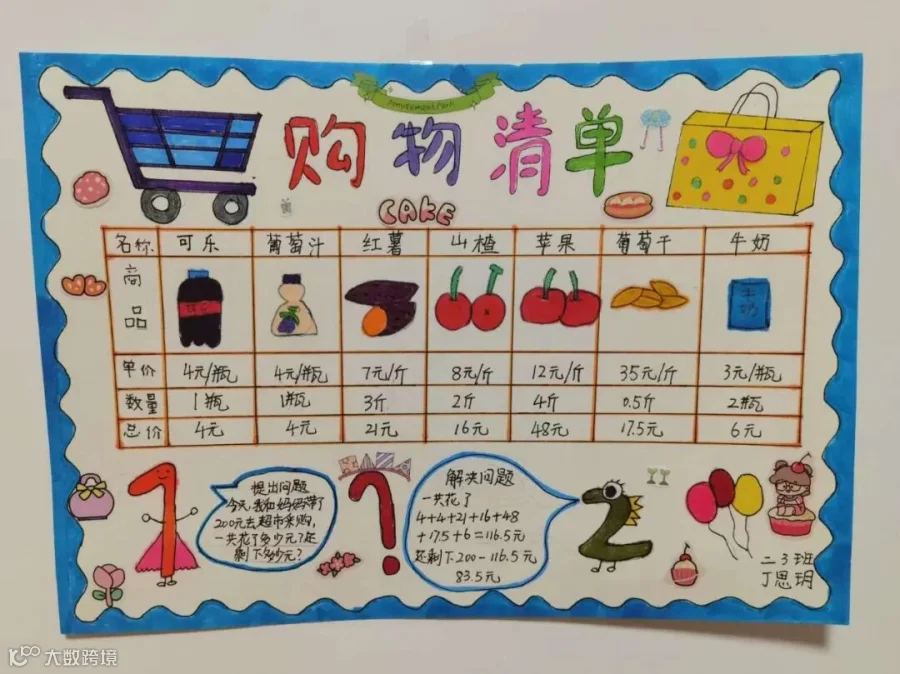 Amusement Park
购物清单
CAKE
名称 可乐 葡萄汁 红薯 山楂 苹果 葡萄干 牛奶
商品
牛奶
单价 4元/瓶 4元/瓶 7元/斤 8元/斤 12元/斤 35元/斤 3元/瓶
数量 1瓶 1瓶 3斤 2斤 4斤 0.5斤 2瓶
总价 4元 4元 21元 16元 48元 17.5元 6元
提出问题
今天,我和妈妈带了
200元去超市采购,
一共花了多少元?还
剩下多少元?
解决问题
一共花了
4+4+21+16+48
+17.5+6=116.5元
还剩下200-116.5元
83.5元
二3班
丁思玥
大数跨境